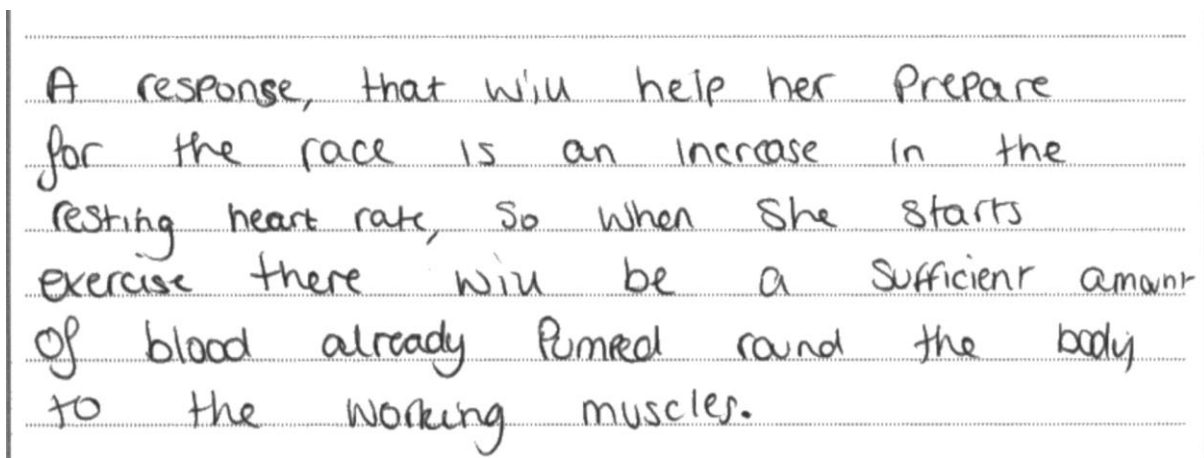 A response, that will help her Prepare
for the race is an increase in the
resting heart rate, so when she starts
exercise there will be a sufficient amount
of blood already Pumped round the body
to the working muscles.